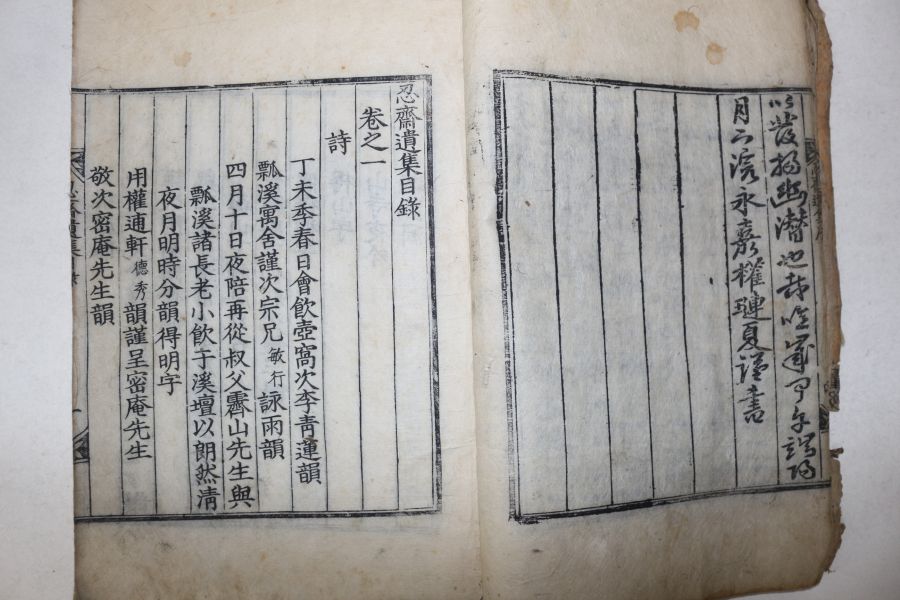 以發揚幽潜也哉歲甲午端陽
月下浣永嘉權璉夏謹書
忍齋遺集目錄
卷之一
詩
丁未季春日會飲壺窩次李青蓮韻
瓢溪寓舍謹次宗兄敏行詠雨韻
四月十日夜陪再從叔父霽山先生與
瓢溪諸長老小飲于溪壇以朗然清
夜月明時分韻得明字
用權通軒德秀韻謹呈密庵先生
敬次密庵先生韻